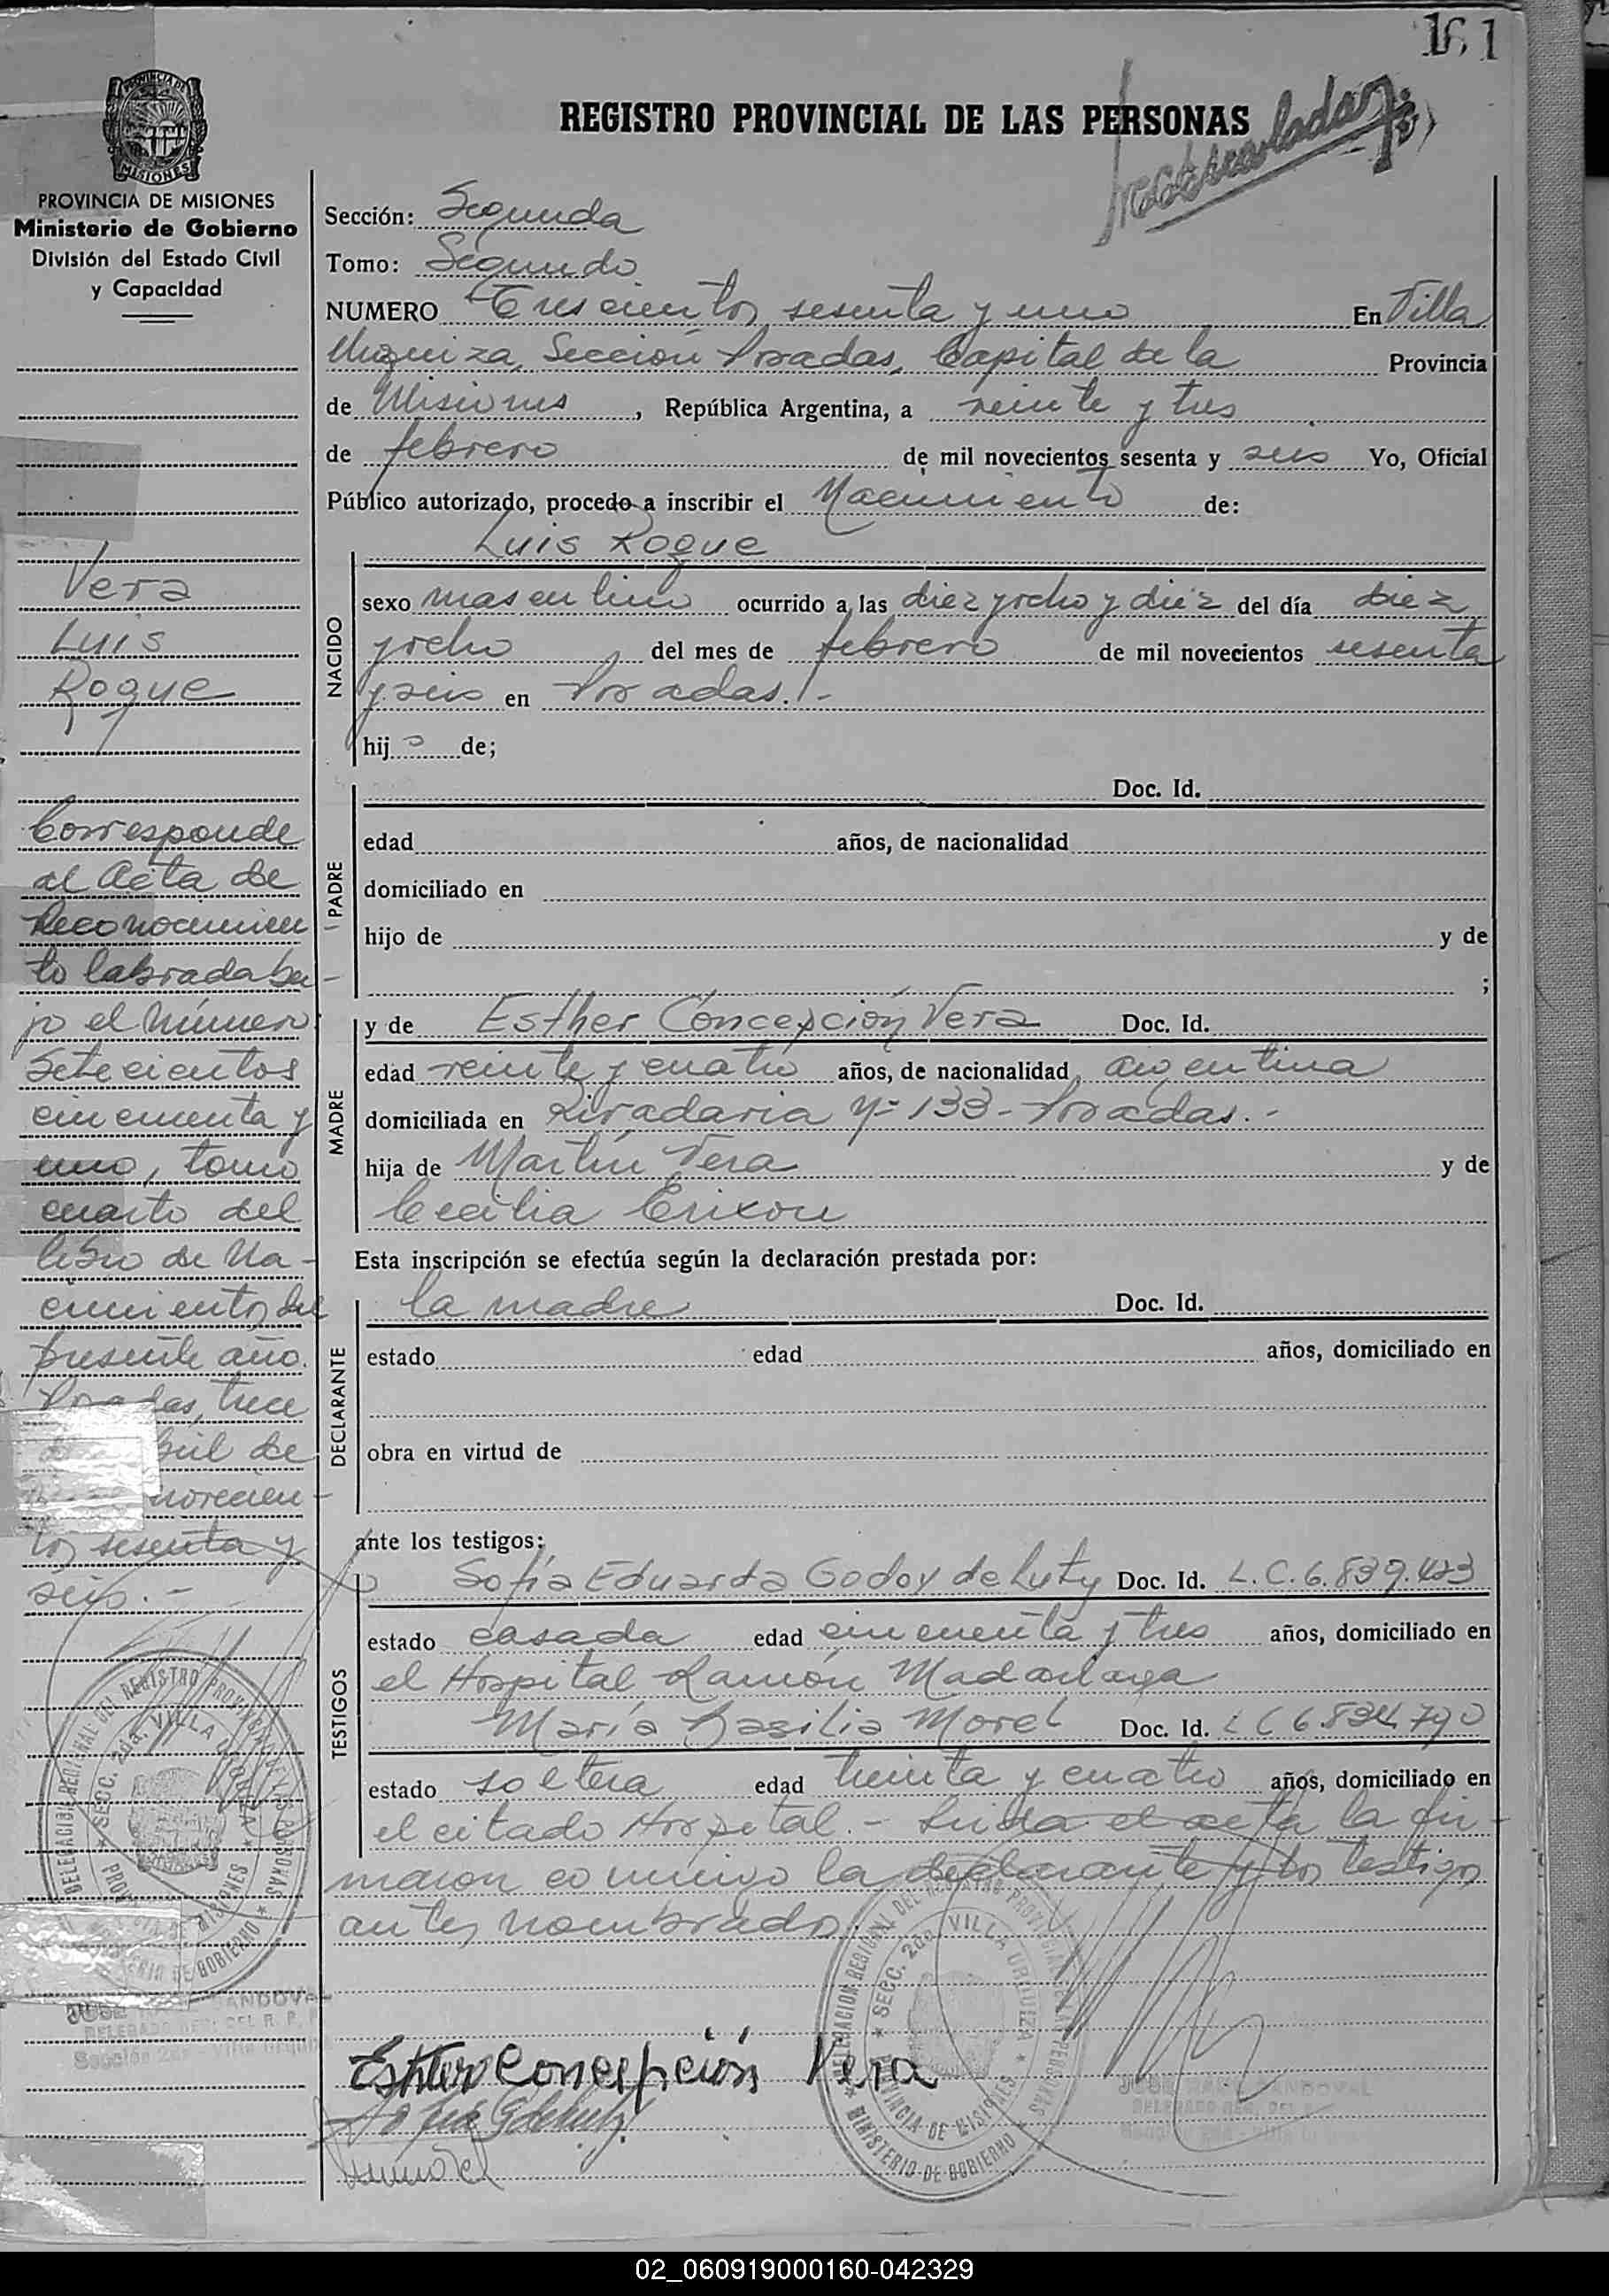 161
REGISTRO PROVINCIAL DE LAS PERSONAS
PROVINCIA DE
MISIONES
PROVINCIA DE MISIONES
Ministerio de Gobierno
División del Estado Civil
y Capacidad
Sección: Segunda
Tomo: Segundo
NUMERO Trescientos sesenta y uno En Villa
Urquiza, Sección Posadas, Capital de la Provincia
de Misiones, República Argentina, a veinte y tres
de febrero de mil novecientos sesenta y seis Yo, Oficial
Público autorizado, procedo a inscribir el Nacimiento de:
Luis Roque
NACIDO
sexo masculino ocurrido a las diez y ocho y diez del día diez
y ocho del mes de febrero de mil novecientos sesenta
y seis en Posadas.-
hijo de;
PADRE
Doc. Id.
edad años, de nacionalidad
domiciliado en
hijo de y de
;
MADRE
y de Esther Concepción Vera Doc. Id.
edad veinte y cuatro años, de nacionalidad argentina
domiciliada en Rivadavia Nº 133 - Posadas.-
hija de Martín Vera y de
Cecilia Erixon
Esta inscripción se efectúa según la declaración prestada por:
DECLARANTE
la madre Doc. Id.
estado edad años, domiciliado en
obra en virtud de
ante los testigos:
TESTIGOS
Sofía Eduarda Godoy de Luty Doc. Id. L.C. 6.839.423
estado casada edad cincuenta y tres años, domiciliado en
el Hospital Ramón Madariaga
María Basilia Morel Doc. Id. L C 6.834.790
estado soltera edad treinta y cuatro años, domiciliado en
el citado Hospital.- Leida el acta la fir-
maron conmigo la declarante y los testigos
antes nombrados.
Esther Concepción Vera
Vera
Luis
Roque
Corresponde
al Acta de
Reconocimien
to labrada ba-
jo el número
Setecientos
cincuenta y
uno, tomo
cuarto del
libro de Na-
cimientos del
presente año.
Posadas, trece
de
novecien-
tos sesenta y
seis.-
DELEGACION REGIONAL DEL REGISTRO PROVINCIAL DE LAS PERSONAS
SECC. 2da. VILLA URQUIZA
PROVINCIA DE MISIONES
MINISTERIO DE GOBIERNO
JOSE SANDOVAL
DELEGADO REG. DEL R. P. P.
Sección 2da - Villa Urquiza
DELEGACION REGIONAL DEL REGISTRO PROVINCIAL DE LAS PERSONAS
SECC. 2da. VILLA URQUIZA
PROVINCIA DE MISIONES
MINISTERIO DE GOBIERNO
JOSE SANDOVAL
DELEGADO REG. DEL
Sección 2da - Villa
02_060919000160-042329